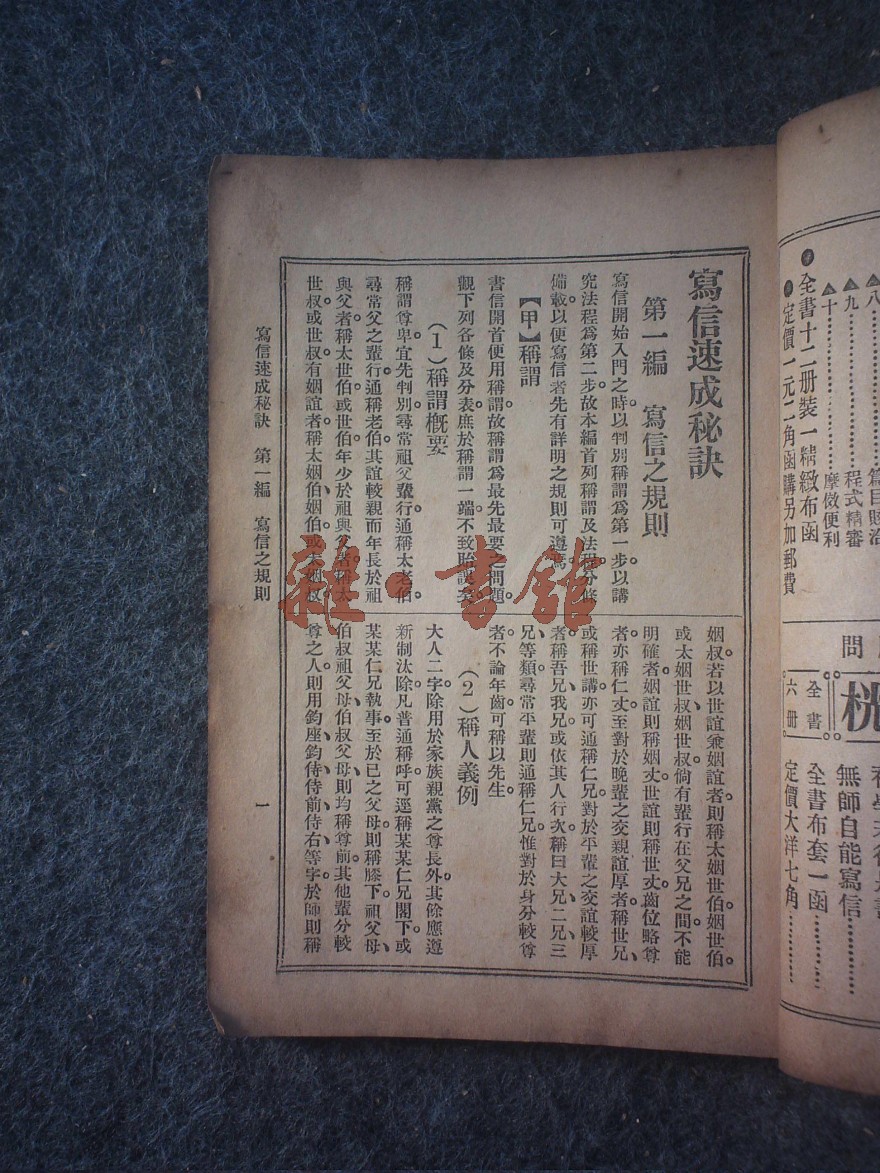 寫信速成秘訣
第一編　寫信之規則
寫信開始入門之時。以判別稱謂爲第一步。以講
究法程爲第二步。故本編首列稱謂及法程。分條
備載。以便寫信者先有詳明之規則可遵焉。
【甲】稱謂
書信開首。便用稱謂。故稱謂爲最先最要之問題。
觀下列各條及分表。庶於稱謂一端。不致貽誤矣。
（1）稱謂概要
稱謂尊卑。宜先判別。尋常祖父輩行。通稱太老伯。
尋常父之輩行。通稱老伯。其誼較親而年長於祖
與父者。稱太世伯。或世伯。年少於祖與父者。稱太
世叔。或世叔。有姻誼者。稱太姻伯、姻伯。或太姻叔、
姻叔。若以世誼兼姻誼者。則稱太姻世伯、姻世伯。
或太姻世叔、姻世叔。倘有輩行在父兄之間。不能
明確者。姻誼則稱姻丈。世誼則稱世丈。齒位略尊
者。亦稱仁丈。至對於晚輩之交親誼厚者。稱世兄、
或稱世講。亦可通稱仁兄。對於平輩之交誼較厚
者。稱吾兄、我兄。或依其人行次。稱曰大兄、二兄、三
兄、等類。尋常平輩則通稱仁兄。惟對於身分較尊
者。不論年齒。可稱以先生。
（2）稱人義例
大人二字。除用於家族親黨之尊長外。其餘應遵
新制汰除。凡普通稱呼。可逕稱某某仁兄閣下。或
某某仁兄執事。至於己之父母。則稱膝下。祖父母、
伯叔祖父母、伯叔父母、則均稱尊前。其他輩分較
尊之人。則用鈞座、鈞侍、侍前、侍右、等字。於師則稱
寫信速成秘訣　第一編　寫信之規則
一
九
程式精審
十
摩倣便利
全書十二册裝一精緻布函
定價一元二角函購另加郵費
問
全書
六册
無師自能寫信
全書布套一函
定價大洋七角
雜·書館